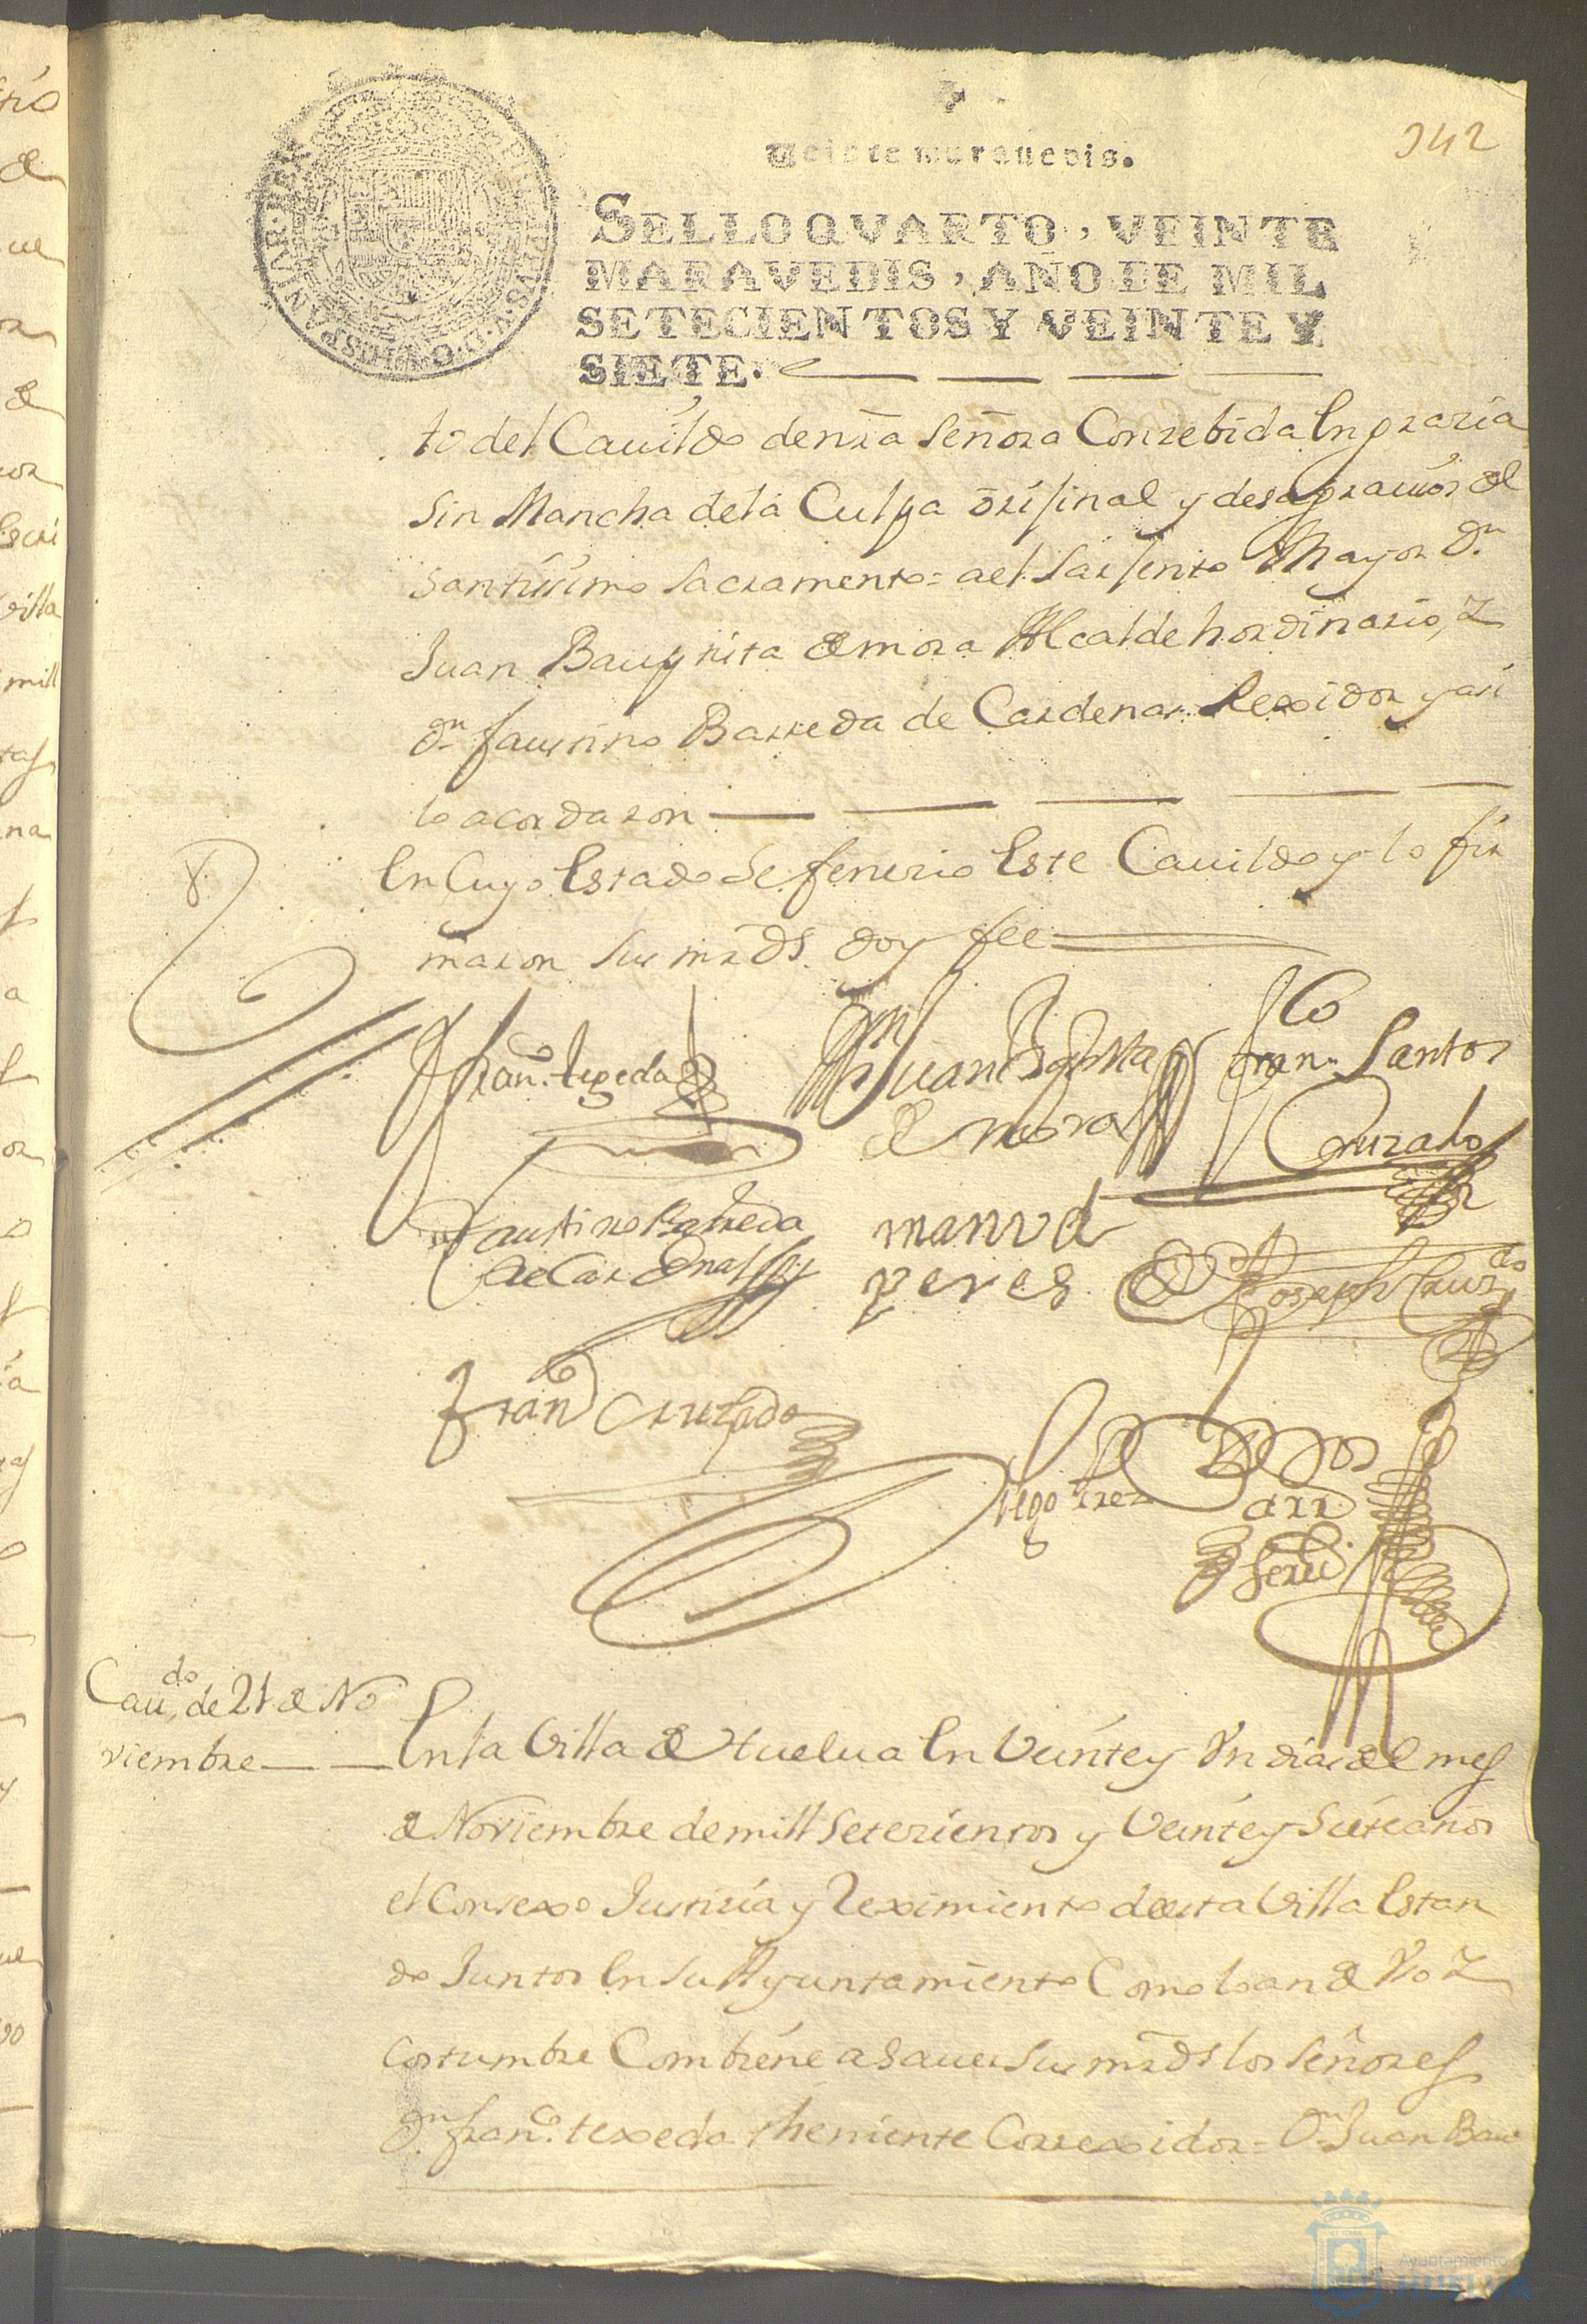 Veinte marauedis.
342
SELLO QVARTO, VEINTE
MARAVEDIS, AÑO DE MIL
SETECIENTOS Y VEINTE Y
SIETE.
to del Cauildo de nra Señora Conzebida En grazia
Sin Mancha de la Culpa orijinal y desagrauios del
Santisimo Sacramento = a el Sarjento Mayor Dn
Juan Bauptista de mora Alcalde hordinario, y
Dn faustino Barreda de Cardenas Rexidor y asi
lo acordaron
En Cuyo Estado Se fenezio Este Cauildo y lo fir
maron Sus mrds. doy fee
Franco. texeda
Dn Juan Baptista
de mora
Franco Santos
Cruzado
Faustino Barreda
de Cardenas
manuel
peres
Joseph Cruzdo
Franco Cruzado
Diego Prez
Cauido. de 21 de No
viembre
En la Villa de Huelua En Veinte y Un dias del mes
de Noviembre de mill Setezientos y Veinte y Siete años
el Conzexo Justizia y Reximiento de esta Villa Estan
do Juntos En Su Ayuntamiento Como lo an de Vso y
costumbre Combiene a Sauer Sus mrds los Señores
Dn franco. texeda theniente Correxidor = Dn Juan Bau
Ayuntamiento
HUELVA